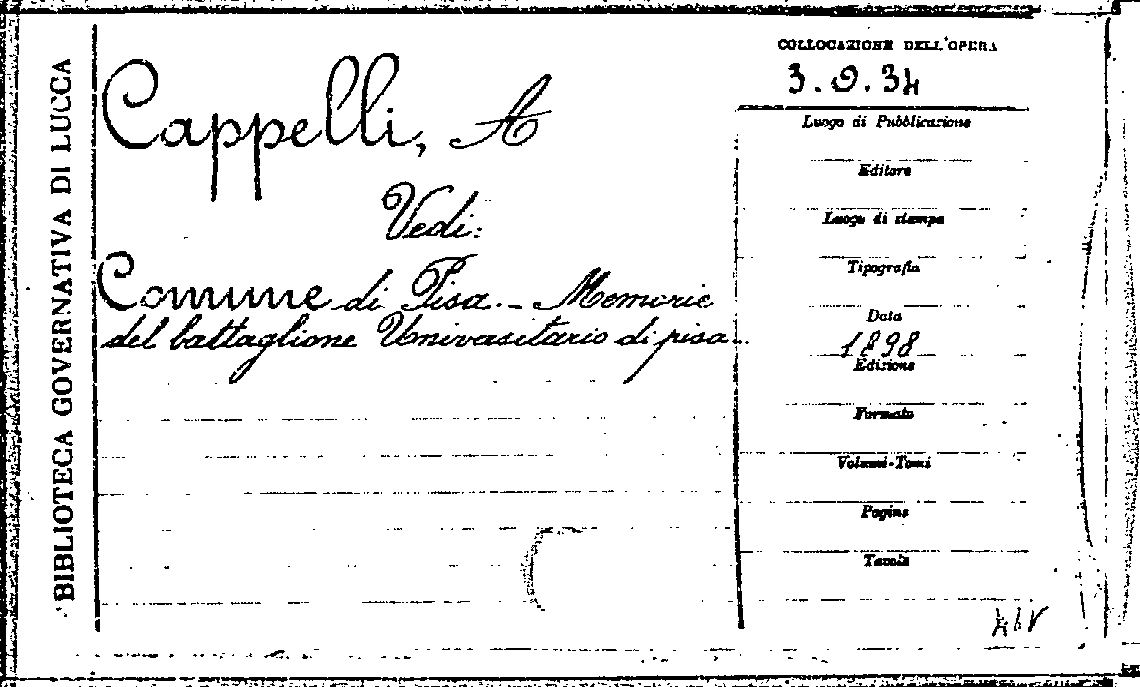 BIBLIOTECA GOVERNATIVA DI LUCCA
Cappelli, A
Vedi:
Comune di Pisa. - Memorie
del battaglione Universitario di pisa..
COLLOCAZIONE DELL'OPERA
3.0.34
Luogo di Pubblicazione
Editore
Luogo di stampa
Tipografia
Data
1898
Edizione
Formato
Volumi-Tomi
Pagine
Tavole